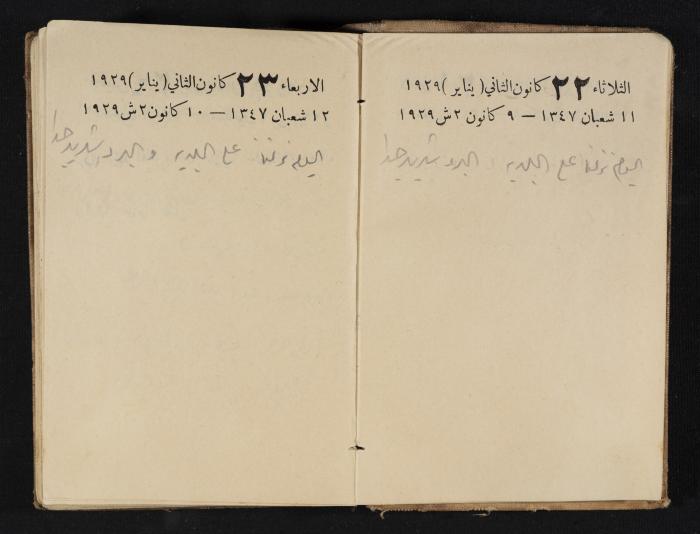 الثلاثاء ٢٢ كانون الثاني (يناير) ١٩٢٩
١١ شعبان ١٣٤٧ — ٩ كانون ٢ ش ١٩٢٩
اليوم نزلنا على البلديه والبرد شديد جدا
الاربعاء ٢٣ كانون الثاني (يناير) ١٩٢٩
١٢ شعبان ١٣٤٧ — ١٠ كانون ٢ ش ١٩٢٩
اليوم نزلنا على البلديه والبرد شديد جدا